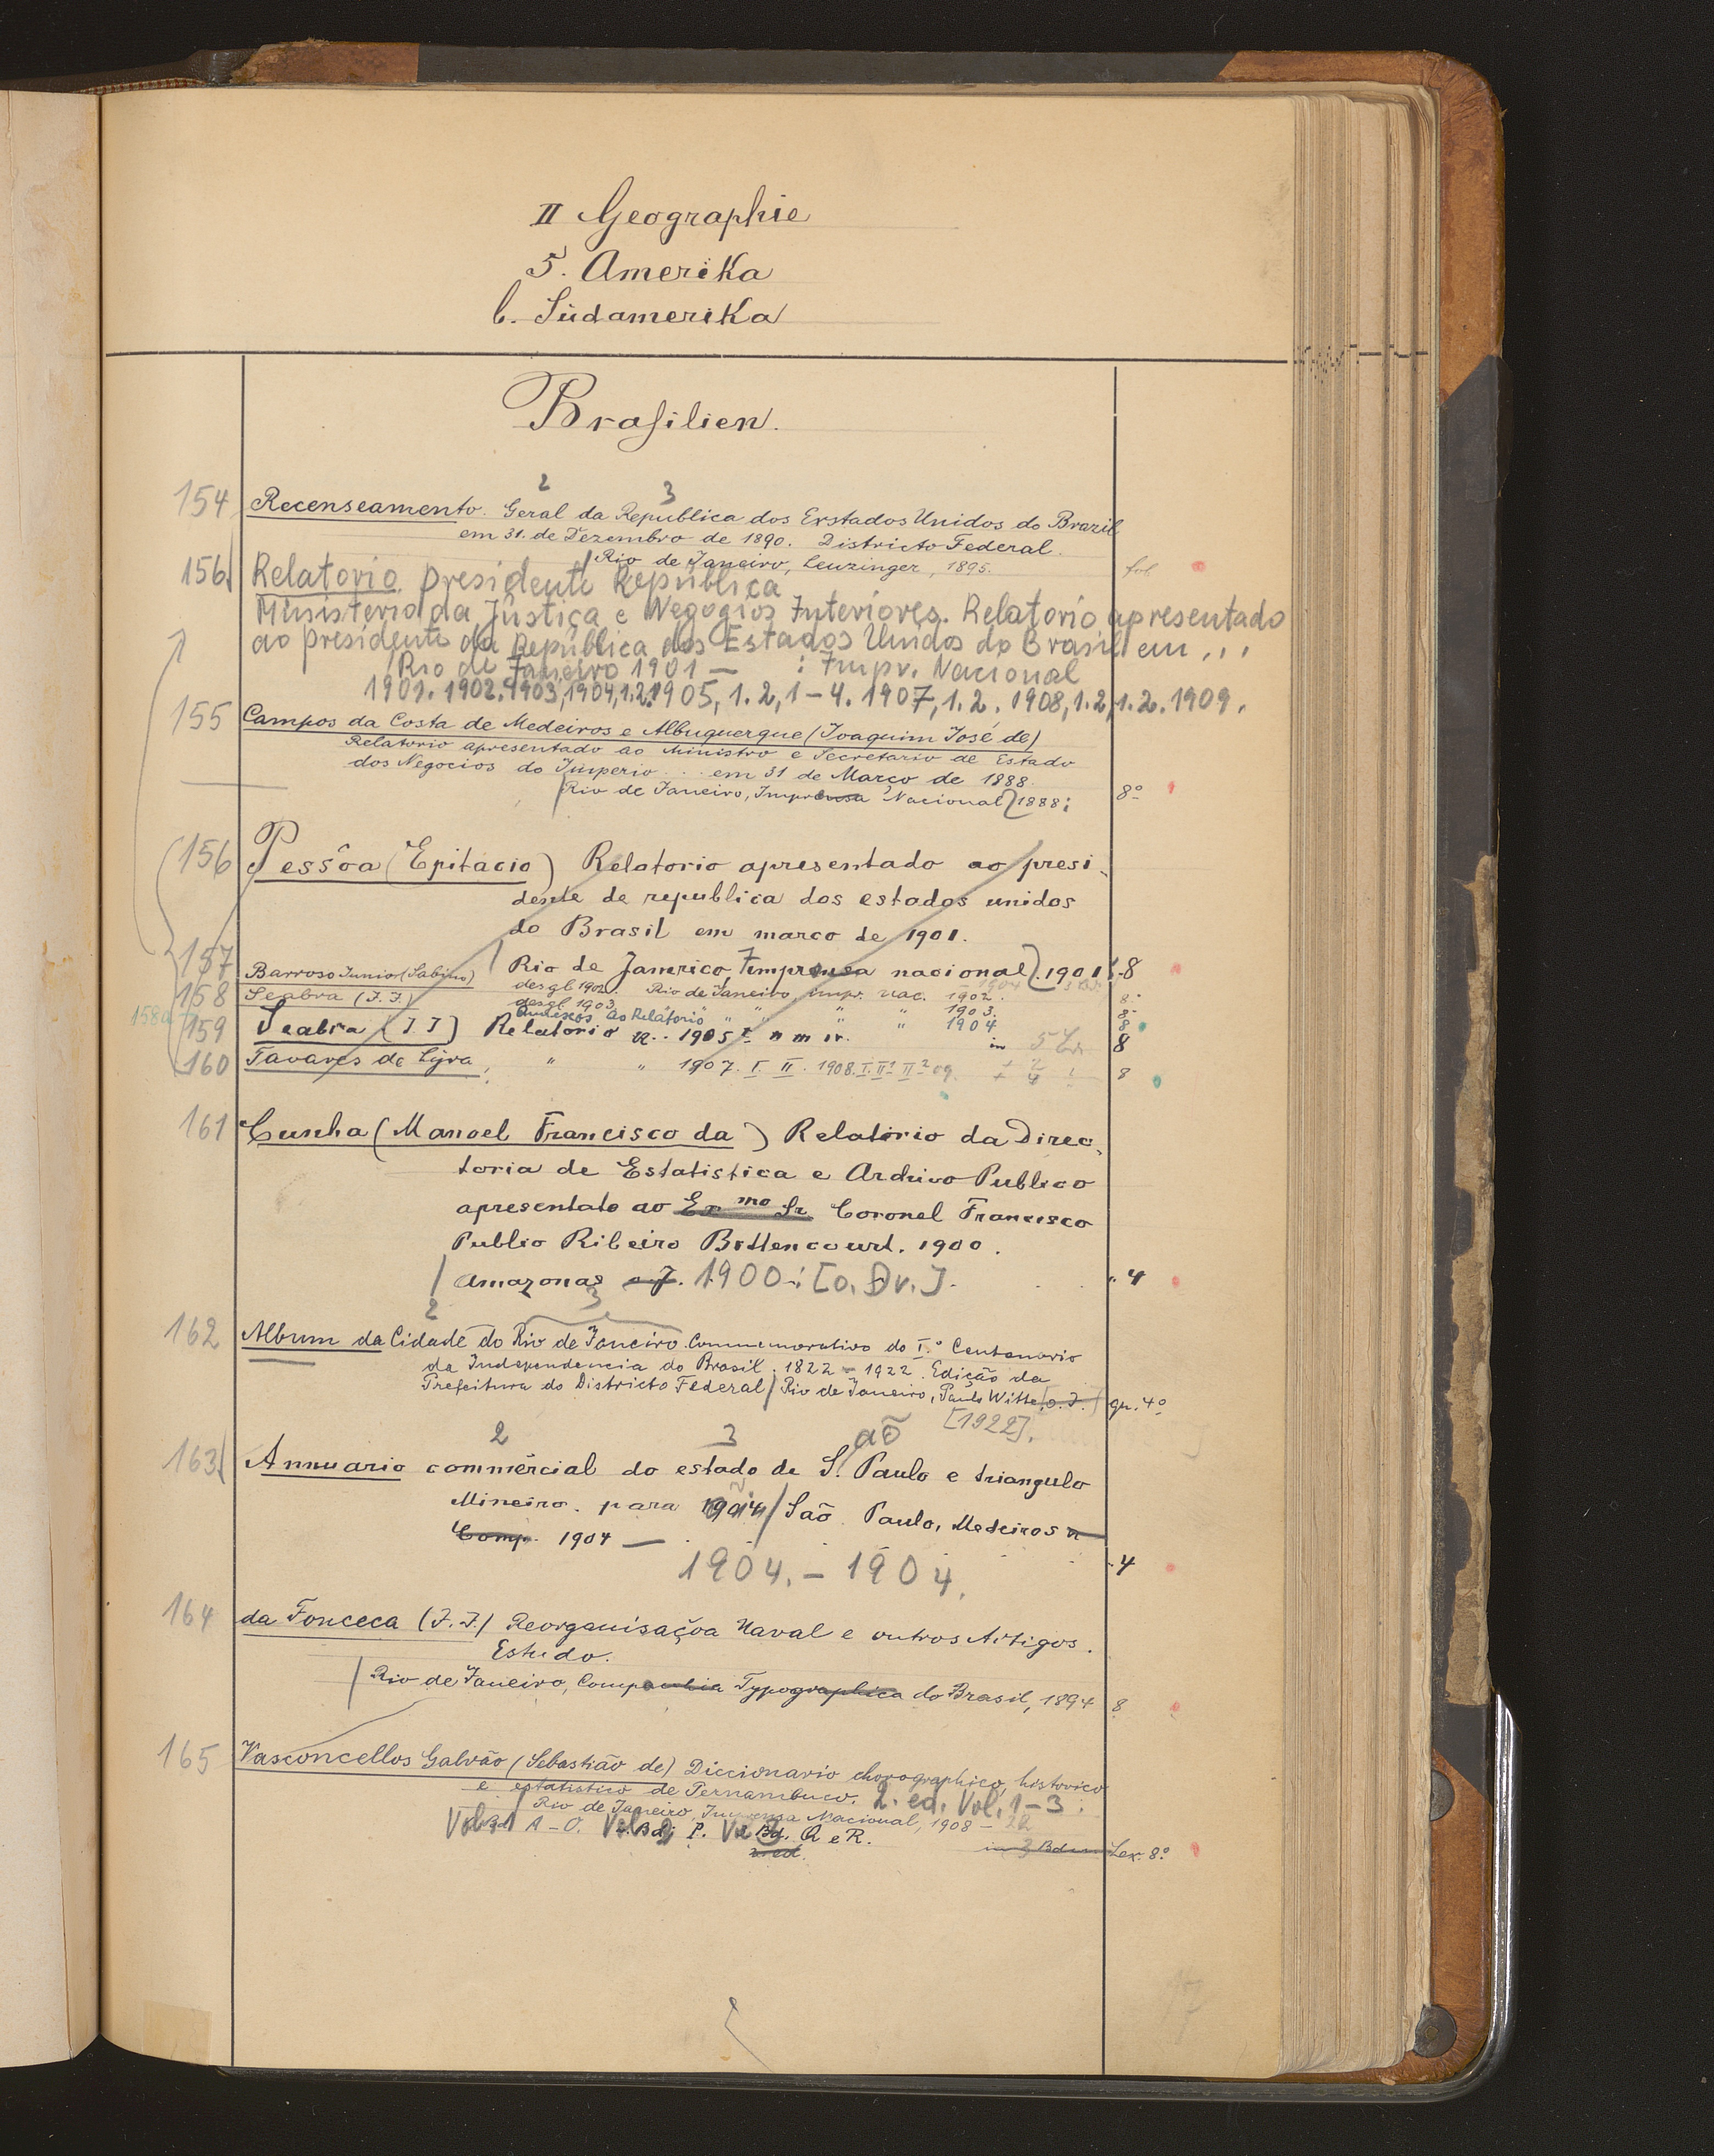 II Geographie
5. Amerika
b. Südamerika
Brasilien.
2 3
154 Recenseamento. Geral da Republica dos Erstados Unidos do Brazil
em 31. de Dezembro de 1890. Districto Federal.
Rio de Janeiro, Leuzinger, 1895. fol.
156 Relatorio. presidente Republica
Ministerio da Justiça e Negogios Interiores. Relatorio apresentado
ao presidente da Republica dos Estados Unidos do Brasil em ...
Rio de Janeiro 1901 — : Impr. Nacional
1901. 1902. 1903, 1904, 1.2. 1905, 1.2, 1-4. 1907, 1.2. 1908, 1.2, 1.2. 1909.
155 Campos da Costa de Medeiros e Albuquerque (Joaquim José de)
Relatorio apresentado ao Ministro e Secretario de Estado
dos Negocios do Imperio ... em 31 de Março de 1888.
Rio de Janeiro, Imprensa Nacional 1888; 8º
156 Pessôa (Epitacio) Relatorio apresentado ao presi-
dente de republica dos estados unidos
do Brasil em marco de 1901.
157 Rio de Janerico, Imprensa nacional. 1901 8
Barroso Junior (Sabino) desgl 1902. Rio de Janeiro, impr. nac. 1902. 8º
158 Seabra (J. J.) desgl. 1903 " " " " 1903. 8º
158a Annexos ao Relatorio " " 1904 8
159 Seabra (J J) Relatorio 1905 I II III IV. in 5 8
160 Tavares de Lyra, " " 1907. I. II. 1908. I. II¹ II² 09. 8
161 Cunha (Manoel Francisco da) Relatório da Direc-
toria de Estatistica e Archivo Publico
apresentato ao Exmo Sr Coronel Francisco
Publio Ribeiro Bittencourt. 1900.
Amazonas o. J. 1900.: [o. Dr.]. 4
2 3
162 Album da Cidade do Rio de Janeiro. Commemorativo do I.º Centenario
da Independencia do Brasil. 1822 - 1922. Edição da
Prefeitura do Districto Federal / Rio de Janeiro, Paulo Witte, o. J. gr. 4º
[1922].
2 3 aõ
163 Annuario commercial do estado de S. Paulo e triangulo
Mineiro. para 1904 / São Paulo, Medeiros u
Comp. 1904 — 4
1904. - 1904.
164 da Fonceca (J. J.) Reorganisaçoa Naval e outros Artigos.
Estudo.
Rio de Janeiro, Companhia Typographica do Brasil, 1894 8
165 Vasconcellos Galvão (Sebastião de) Diccionario chorographico, historico
e estatistico de Pernambuco. 2. ed. Vol. 1-3.
Rio de Janeiro, Imprensa Nacional, 1908 -
Vol. 1 A - O. Vol. 2 P. Vol 3 Q e R.
2. ed. in 3 Bden Lex. 8º
17